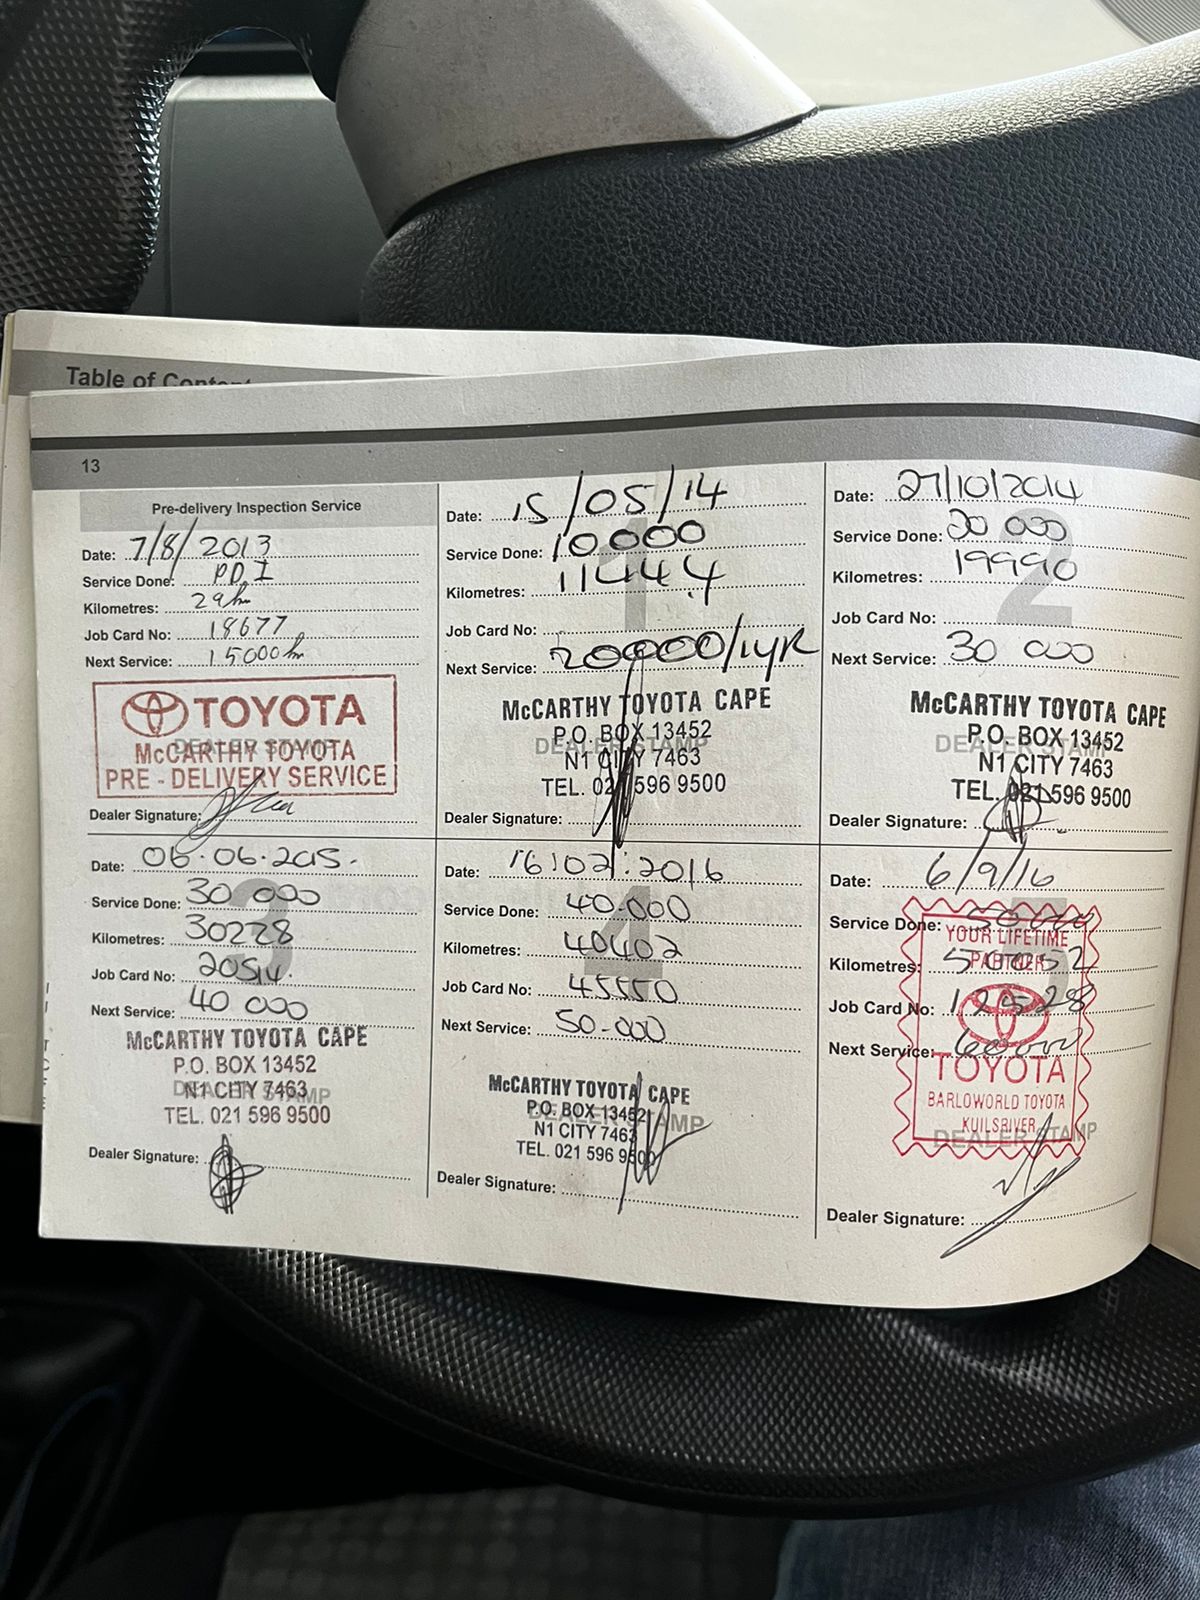 Table of
13
Pre-delivery Inspection Service
Date: 7/8/2013
Service Done: P.D.I
Kilometres: 29km
Job Card No: 18677
Next Service: 15000km
TOYOTA
DEALER STAMP
McCARTHY TOYOTA
PRE - DELIVERY SERVICE
Dealer Signature:
1
Date: 15/05/14
Service Done: 10000
Kilometres: 11444
Job Card No:
Next Service: 20000/1yR
McCARTHY TOYOTA CAPE
P.O. BOX 13452
DEALER STAMP
N1 CITY 7463
TEL. 021 596 9500
Dealer Signature:
2
Date: 27/10/2014
Service Done: 20 000
Kilometres: 19990
Job Card No:
Next Service: 30 000
McCARTHY TOYOTA CAPE
P.O. BOX 13452
DEALER STAMP
N1 CITY 7463
TEL. 021 596 9500
Dealer Signature:
3
Date: 06.06.2015.
Service Done: 30 000
Kilometres: 30228
Job Card No: 20514.
Next Service: 40 000
McCARTHY TOYOTA CAPE
P.O. BOX 13452
DEALER STAMP
N1 CITY 7463
TEL. 021 596 9500
Dealer Signature:
4
Date: 16:02:2016
Service Done: 40-000
Kilometres: 40402
Job Card No: 45550
Next Service: 50-000
McCARTHY TOYOTA CAPE
P.O. BOX 13452
DEALER STAMP
N1 CITY 7463
TEL. 021 596 9500
Dealer Signature:
Date: 6/9/16
Service Done: 50000
YOUR LIFETIME
PARTNER
Kilometres: 50052
Job Card No: 125228
Next Service: 60000
TOYOTA
BARLOWORLD TOYOTA
KUILSRIVER
DEALER STAMP
Dealer Signature: